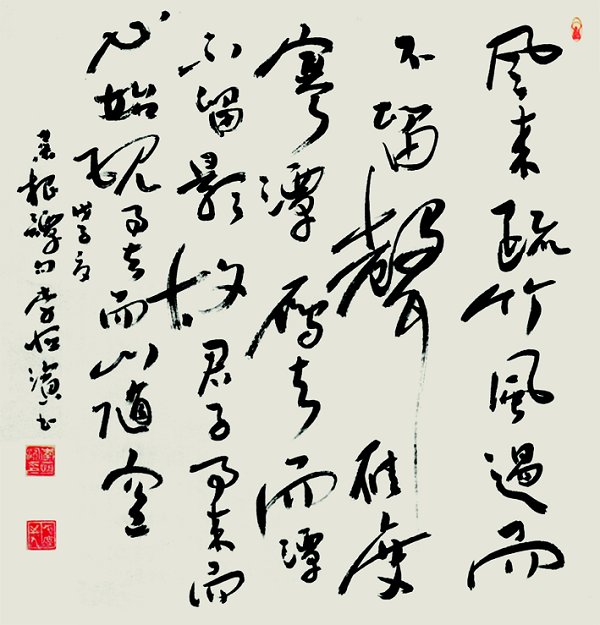 風来疏竹風過而
不留聲雁度
寒潭雁去而潭
不留影故君子事来而
心始現事去而心隨空
戊子夏
菜根譚句